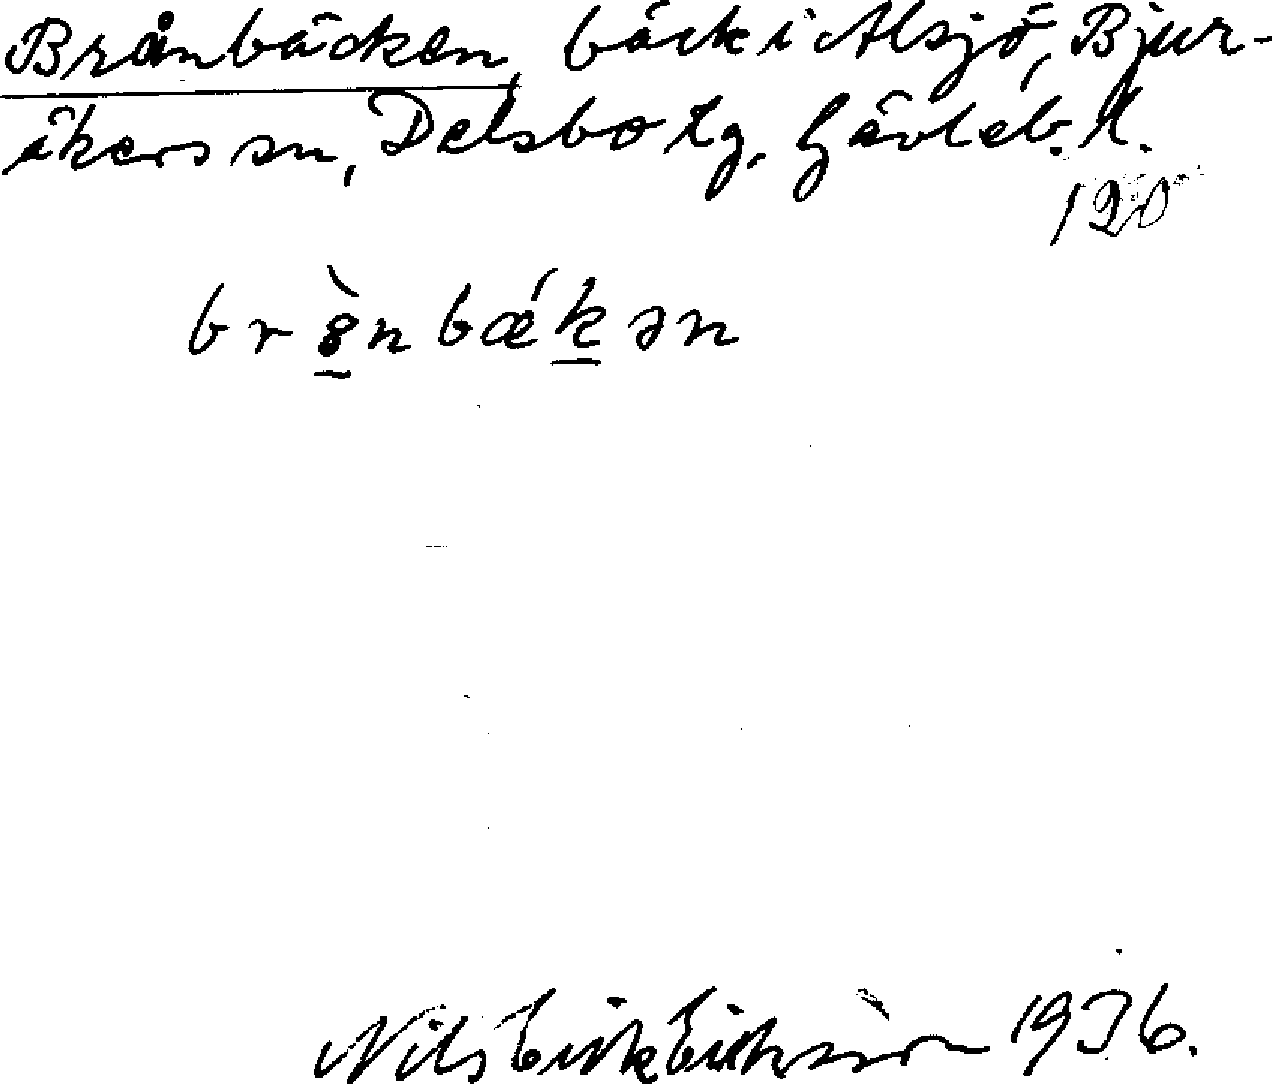 Brånbäcken, bäck i Alsjö, Bjur-
åkers sn, Delsbo tg, Gävleb. l.
120
br8̱̀nbǽḵən
Nils Erik Eriksson 1936.